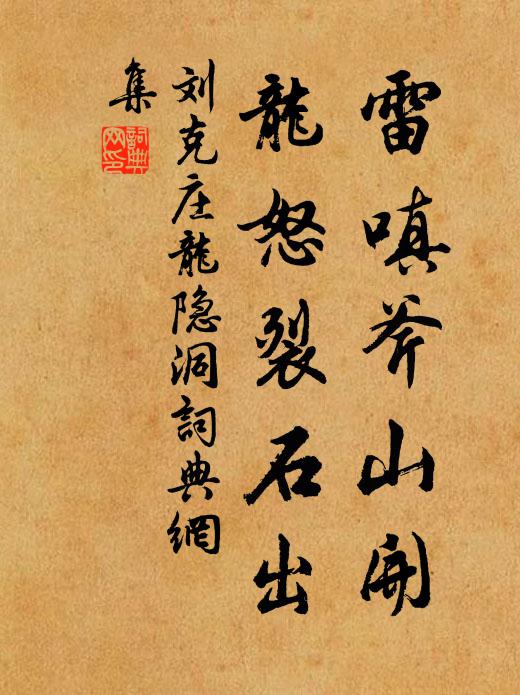 雷嗔斧山開
龍怒裂石出
刘克庄龍隐洞詞典網
集
詞典
网印